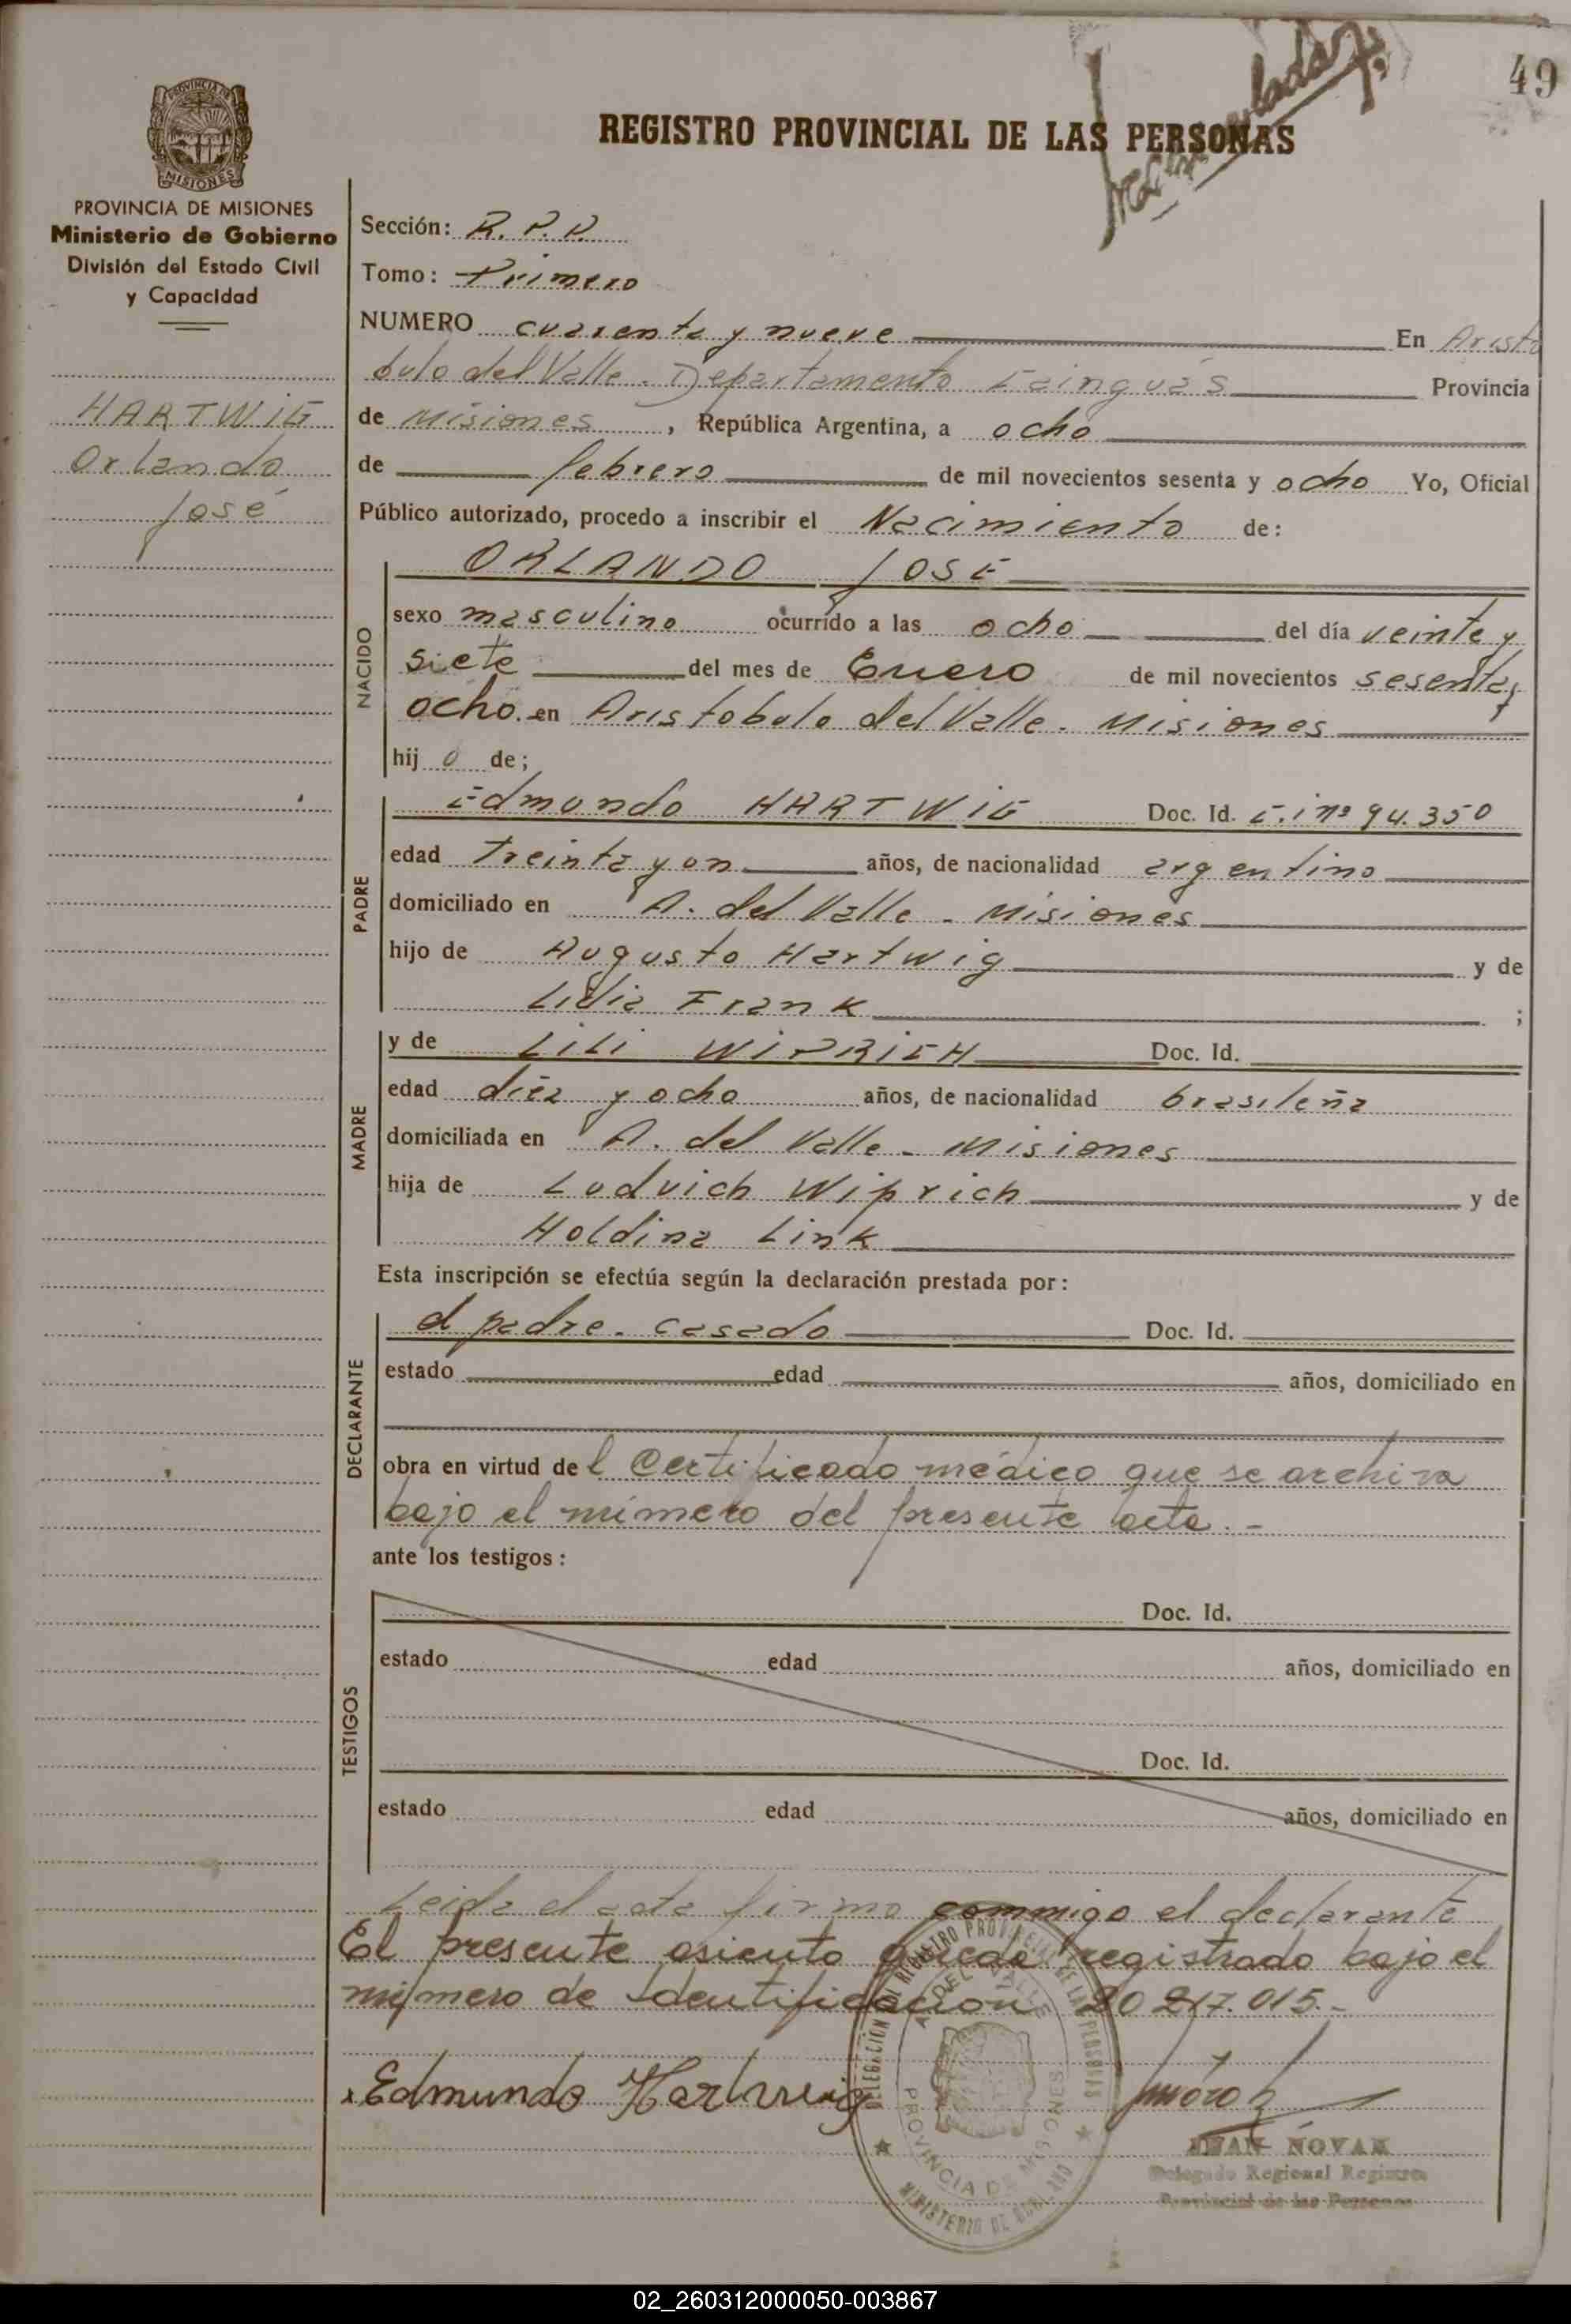 49
REGISTRO PROVINCIAL DE LAS PERSONAS
PROVINCIA DE MISIONES
Ministerio de Gobierno
División del Estado Civil
y Capacidad
HARTWIG
Orlando
José
Sección: R. P. P.
Tomo: Primero
NUMERO cuarenta y nueve En Aristó
bulo del Valle. Departamento Cainguás Provincia
de Misiones, República Argentina, a ocho
de febrero de mil novecientos sesenta y ocho Yo, Oficial
Público autorizado, procedo a inscribir el Nacimiento de:
ORLANDO JOSE
NACIDO
sexo masculino ocurrido a las ocho del día veinte y
siete del mes de Enero de mil novecientos sesenta y
ocho. en Aristobulo del Valle - Misiones
hijo de;
PADRE
Edmundo HARTWIG Doc. Id. C.i nº 94.350
edad treinta y un años, de nacionalidad argentino
domiciliado en A. del Valle - Misiones
hijo de Augusto Hartwig y de
Lidia Frank ;
MADRE
y de LiLi WiPRiCH Doc. Id.
edad diez y ocho años, de nacionalidad brasileña
domiciliada en A. del Valle - Misiones
hija de Ludvich Wiprich y de
Holdina Link
Esta inscripción se efectúa según la declaración prestada por:
DECLARANTE
el padre - casado Doc. Id.
estado edad años, domiciliado en
obra en virtud del Certificado médico que se archiva
bajo el número del presente acta.-
ante los testigos:
TESTIGOS
Doc. Id.
estado edad años, domiciliado en
Doc. Id.
estado edad años, domiciliado en
Leida el acta firma conmigo el declarante
El presente asiento queda registrado bajo el
número de Identificación 20.217.015.-
Edmundo Hartwig
JUAN NOVAK
Delegado Regional Registro
Provincial de las Personas
DELEGACIÓN REGISTRO PROVINCIAL DE LAS PERSONAS
A. DEL VALLE
PROVINCIA DE MISIONES
MINISTERIO DE GOBIERNO
02_260312000050-003867